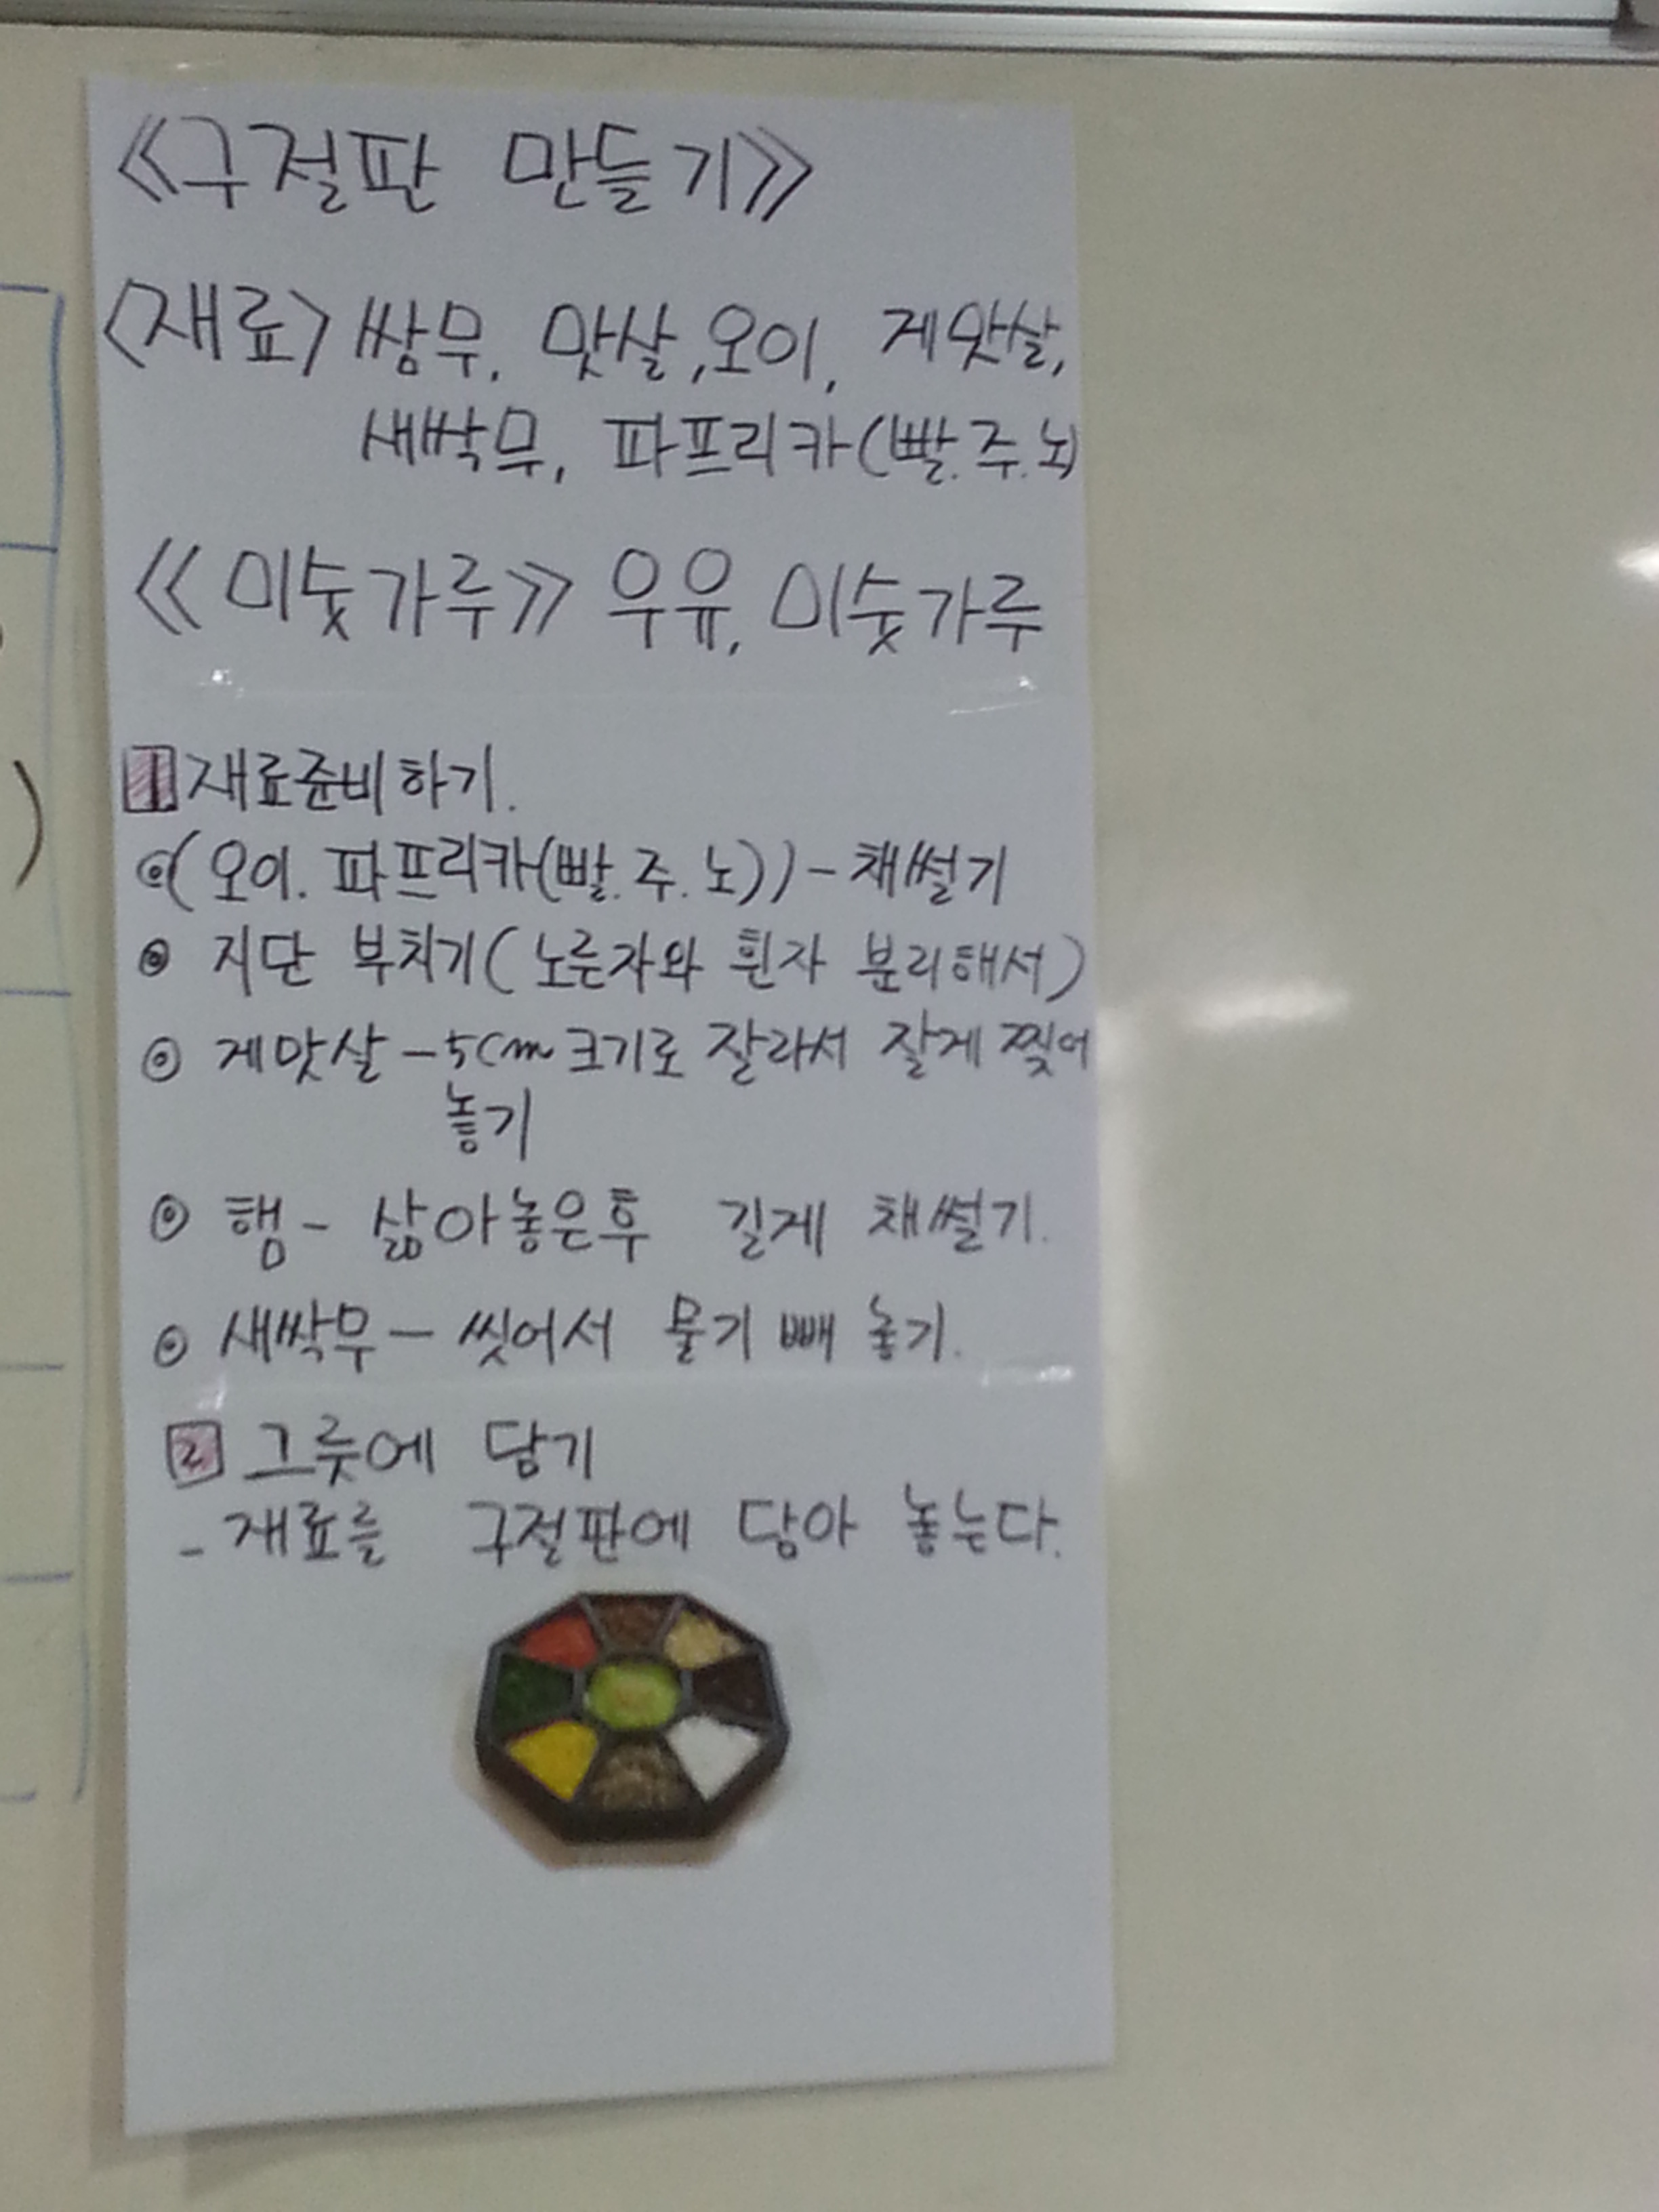 《구절판 만들기》
<재료> 쌈무, 맛살, 오이, 게맛살,
새싹무, 파프리카(빨.주.노)
《미숫가루》 우유, 미숫가루
1 재료준비하기.
◎(오이. 파프리카(빨.주.노))-채썰기
◎ 지단 부치기(노른자와 흰자 분리해서)
◎ 게맛살-5cm크기로 잘라서 잘게 찢어
놓기
◎ 햄- 삶아놓은후 길게 채썰기.
◎ 새싹무- 씻어서 물기 빼 놓기.
2 그릇에 담기
- 재료를 구절판에 담아 놓는다.
)